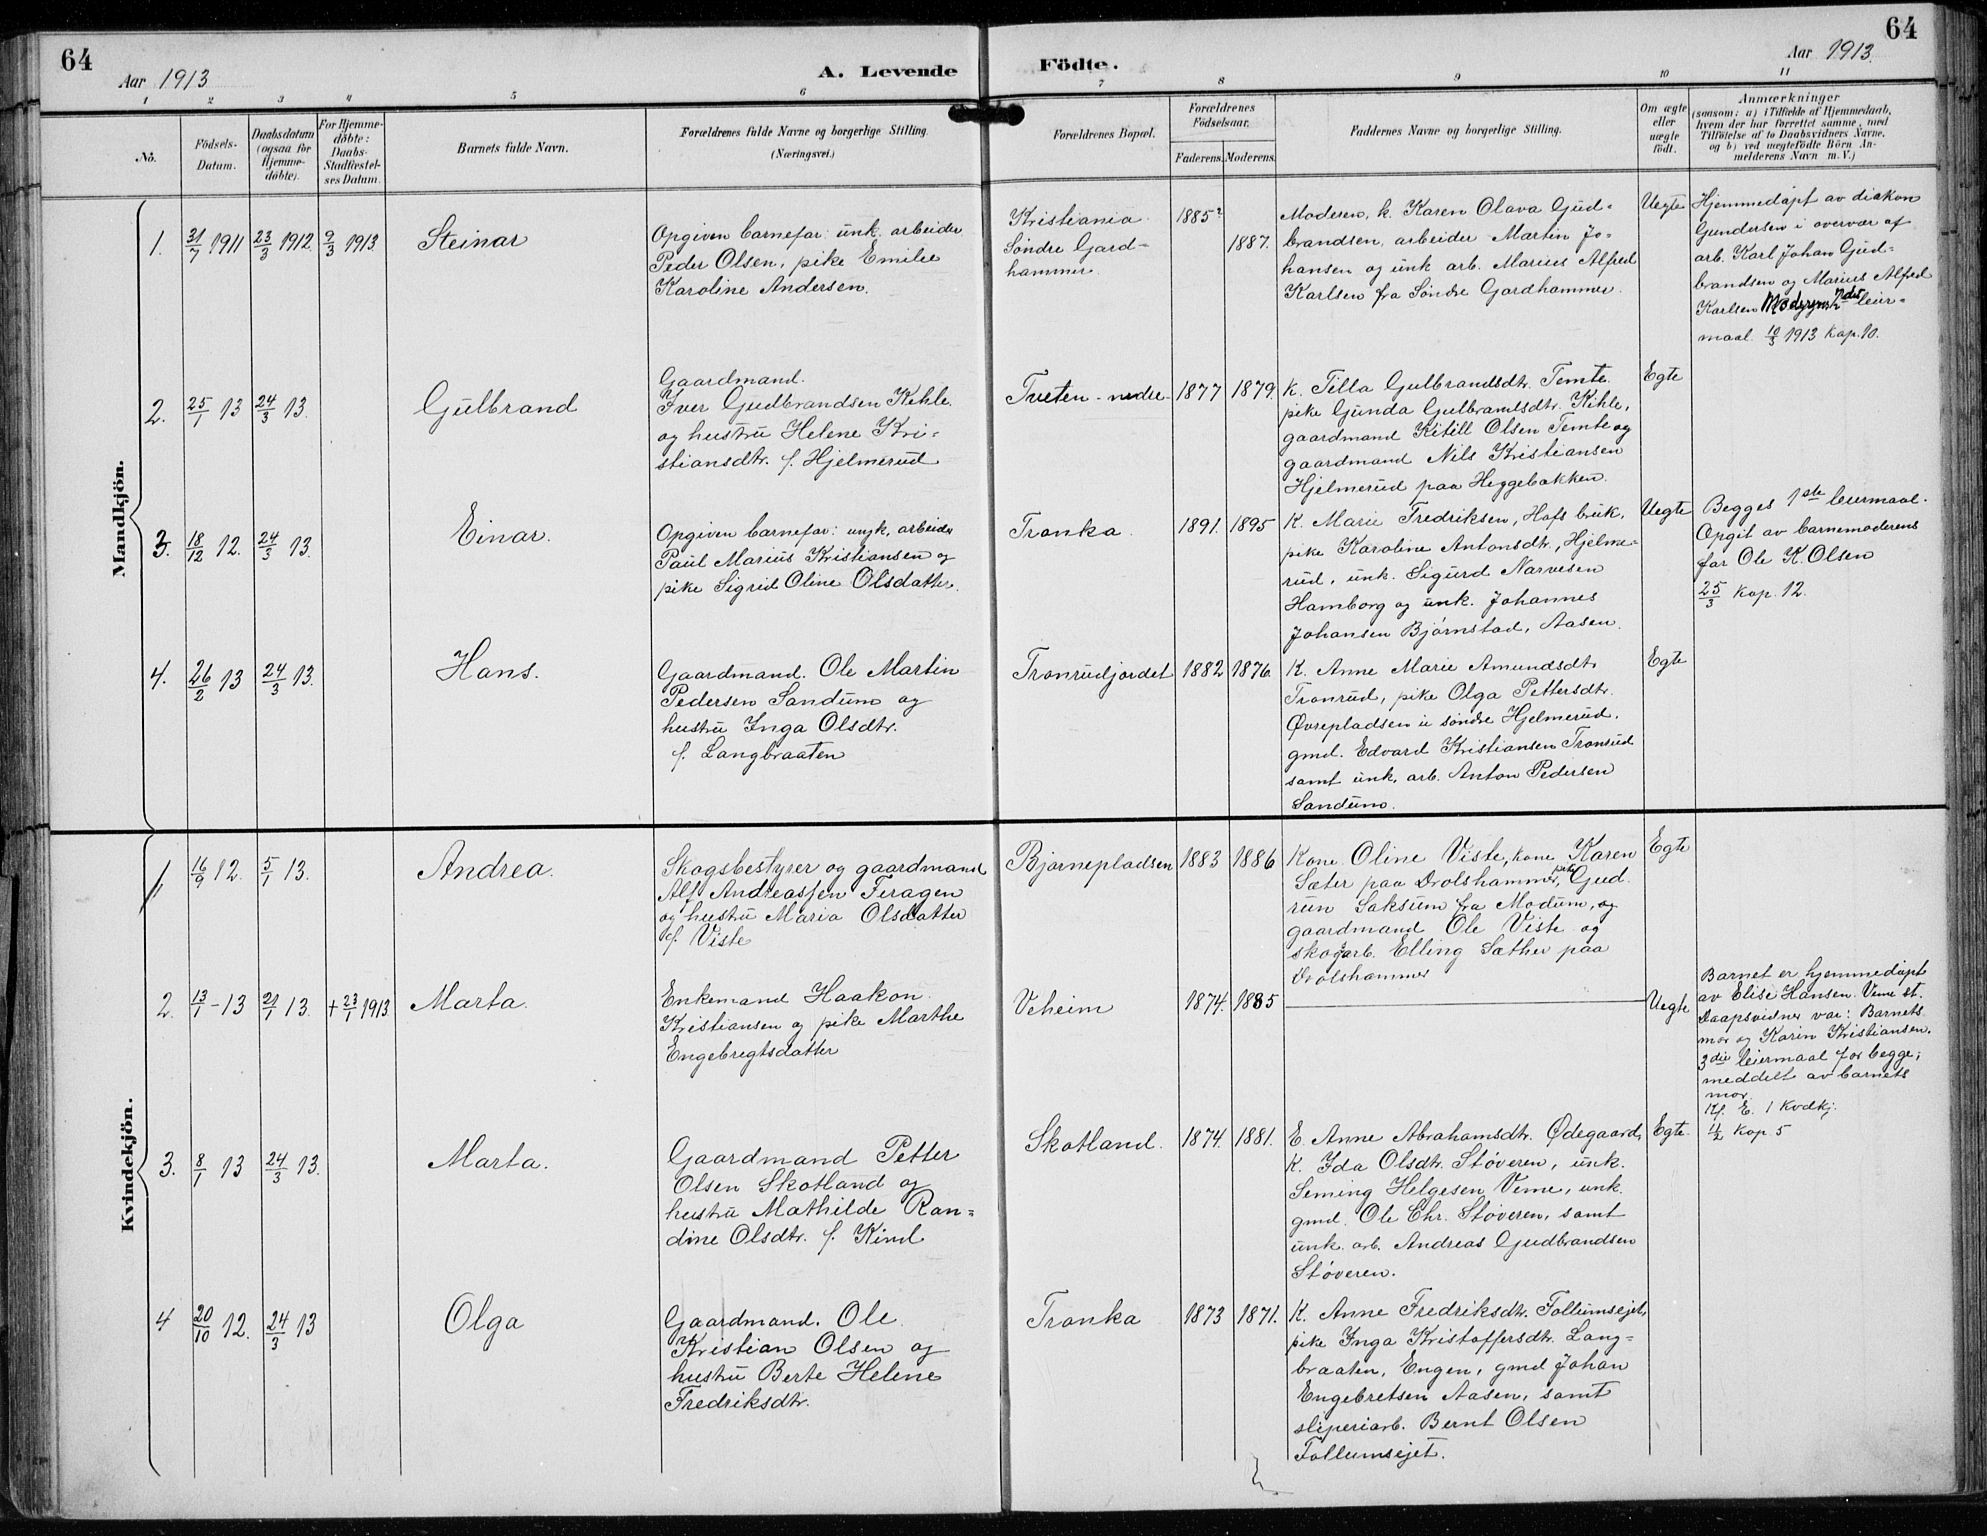 64
Aar 1913
A. Levende
Födte.
Aar 1913.
64
1 2 3 4 5 6 7 8 9 10 11
No.
Födsels-
Datum.
Daabsdatum
(ogsaa for
Hjemme-
döbte).
For Hjemme-
döbte:
Daabs-
Stadfæstel-
ses Datum.
Barnets fulde Navn.
Forældrenes fulde Navne og borgerlige Stilling.
(Næringsvei.)
Forældrenes Bopæl.
Forældrenes
Födselsaar.
Faderens. Moderens.
Faddernes Navne og borgerlige Stilling.
Om ægte
eller
uægte
födt.
Anmærkninger
(saasom: a) i Tilfælde af Hjemmedaab,
hvem der har forrettet samme, med
Tilföielse af to Daabsvidners Navne,
og b) ved uægtefödte Börn An-
melderens Navn m. V.)
Mandkjön.
1. 31/7 1911 23/3 1912. 9/3 1913 Steinar
Opgiven barnefar: unk. arbeider
Peder Olsen, pike Emilie
Karoline Andersen.
Kristiania
Søndre Gard-
hammer.
1885? 1887.
Moderen, k. Karen Olava Gud-
brandsen, arbeider Martin Jo-
hansen og unk arb. Marius Alfred
Karlsen fra Søndre Gardhammer.
Uegte
Hjemmedøpt av diakon
Gundersen i overvær af
arb. Karl Johan Gud-
brandsen og Marius Alfred
Karlsen Moderens 2det leier-
maal. 10/3 1913 Kap. 10.
2. 25/1 13 24/3 13. Gulbrand
Gaardmand.
Iver Gudbrandsen Kihle
og hustru Helene Kri-
stiansdtr. f. Hjelmerud
Tveten - nedre - 1877 1879.
K. Tilla Gulbrandsdtr. Temte.
pike Gunda Gulbrandsdtr. Kihle,
gaardmand Kitill Olsen Temte og
gaardmand Nils Kristiansen
Hjelmerud paa Heggebakken.
Egte
3. 18/12 12. 24/3 13. Einar.
Opgiven barnefar: ungk. arbeider
Paul Marius Kristiansen og
pike Sigrid Oline Olsdatter.
Tranka. 1891. 1895
K. Marie Fredriksen, Hofs bruk,
pike Karoline Antonsdtr., Hjelme-
rud, unk. Sigurd Narvesen
Hamborg og unk. Johannes
Johansen Bjørnstad, Aasen.
Uegte
Begges 1ste leiermaal.
Opgit av barnemoderens
far Ole K. Olsen
25/3 Kap. 12.
4. 26/2 13 24/3 13. Hans.
Gaardmand. Ole Martin
Pedersen Sandum og
hustru Inga Olsdtr.
f. Langbraaten
Tronrudjordet 1882 1876.
K. Anne Marie Amundsdtr
Tronrud, pike Olga Pettersdtr.
Øvrepladsen u søndre Hjelmerud,
gmd. Edvard Kristiansen Tronrud
samt unk. arb. Anton Pedersen
Sandum.
Egte
Kvindekjön.
1 16/9 12. 5/1 13. Andrea.
Skogsbestyrer og gaardmand
Alf Andreassen Feragen
og hustru Maria Olsdatter
f. Viste
Bjørnepladsen 1883 1886
Kone Oline Viste, kone Karen
Sæter paa Drolshammer, pike Gud-
run Saksum fra Modum, og
gaardmand Ole Viste og
skogarb. Elling Sæther paa
Drolshammer
Egte
2. 13/1 - 13 21/1 13. + 23/1 1913 Marta.
Enkemand Haakon
Kristiansen og pike Marthe
Engebregtsdatter
Veheim 1874. 1885
Uegte
Barnet er hjemmedøpt
av Elise Hansen. Veme st.
Daapsvidner var: Barnets
mor og Karin Kristiansen.
3die leiermaal for begge;
meddelt av barnets
mor.
Kf. E. 1 Kvdkj.
1/2 Kap 5
3. 8/1 13 24/3 13. Marta.
Gaardmand Petter
Olsen Skotland og
hustru Mathilde Ran-
dine Olsdtr. f. Kind
Skotland. 1874. 1881.
E. Anne Abrahamsdtr. Ødegaard,
K. Ida Olsdtr. Støveren, unk.
Seming Helgesen Veme, unk
gmd. Ole Chr. Støveren, samt
unk. arb. Andreas Gudbrandsen
Støveren.
Egte.
4 20/10 12. 24/3 13 Olga
Gaardmand. Ole
Kristian Olsen og
hustru Berte Helene
Fredriksdtr.
Tranka 1873 1871.
K. Anne Fredriksdtr. Follumsejet,
pike Inga Kristoffersdtr. Lang-
braaten, Engen, gmd Johan
Engebretsen Aasen, samt
sliperiarb. Bernt Olsen
Follumsejet.